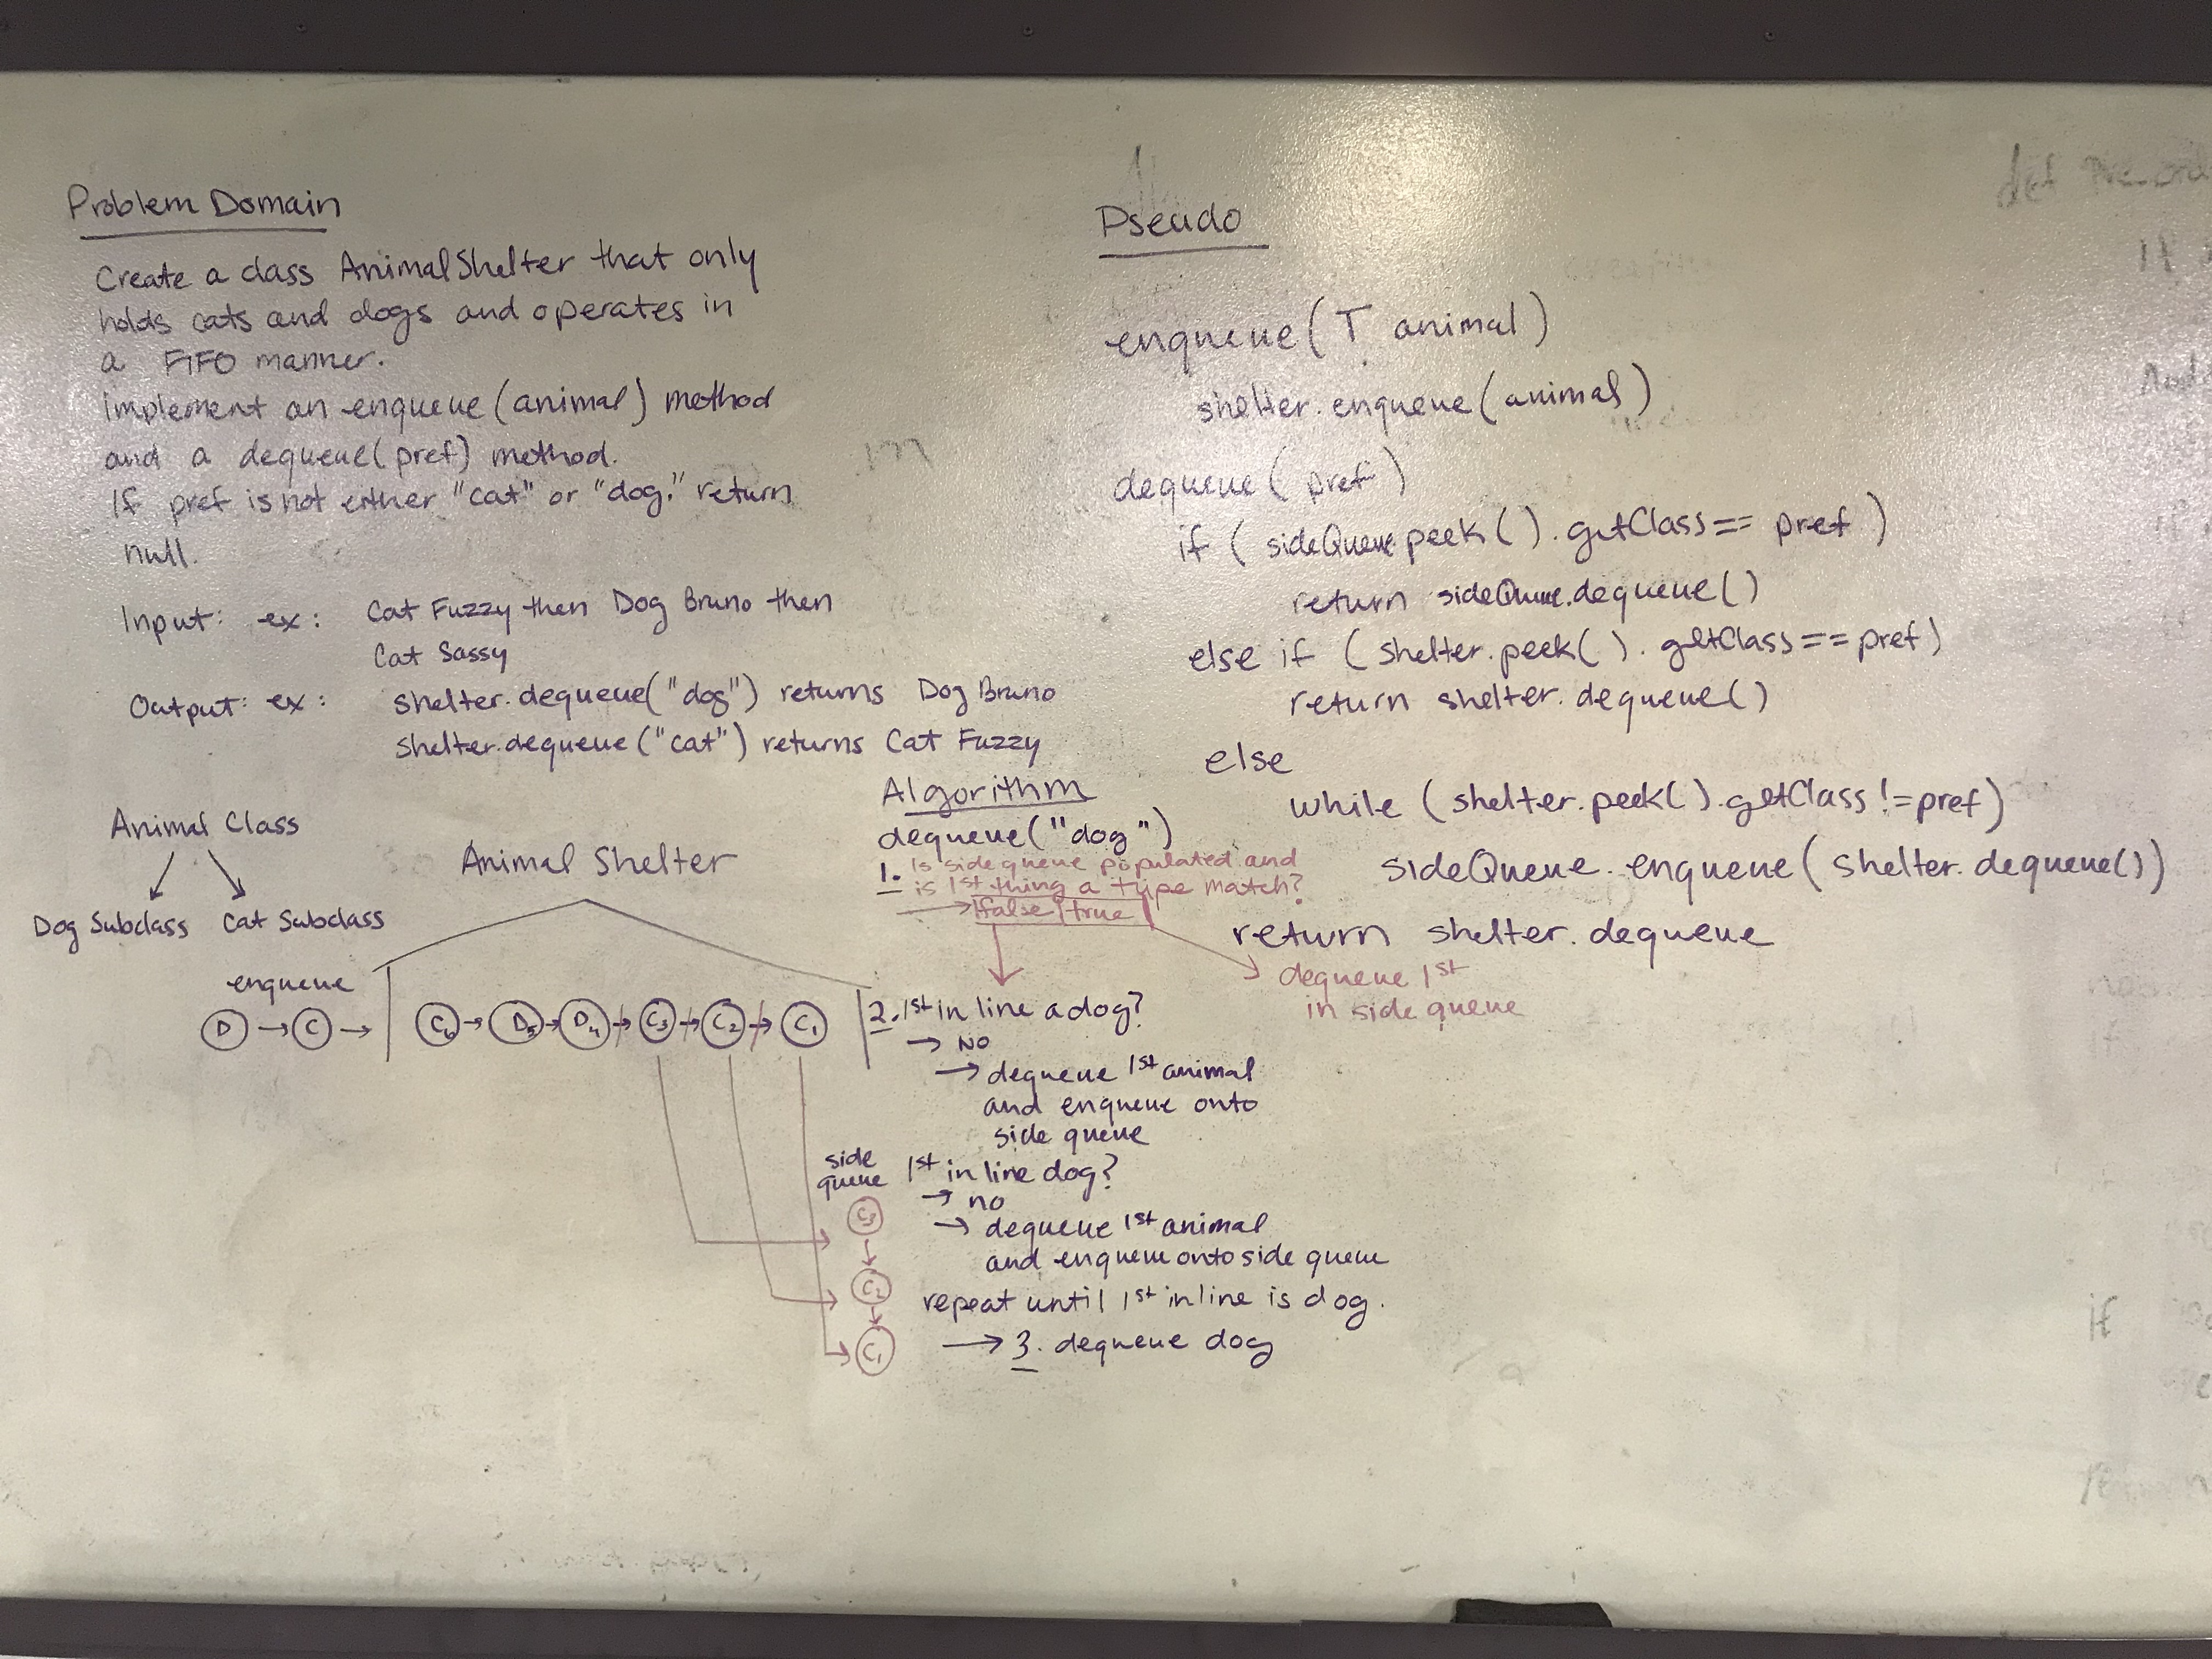 Problem Domain
Create a class AnimalShelter that only
holds cats and dogs and operates in
a FIFO manner.
implement an enqueue(animal) method
and a dequeue(pref) method.
If pref is not either "cat" or "dog." return
null.
Input: ex: Cat Fuzzy then Dog Bruno then
Cat Sassy
Output: ex: shelter.dequeue("dog") returns Dog Bruno
shelter.dequeue("cat") returns Cat Fuzzy
Animal Class
Dog Subclass Cat Subclass
Animal Shelter
enqueue
D C C6 D5 D4 C3 C2 C1
side
queue
C3
C2
C1
Algorithm
dequeue("dog")
1. Is side queue populated and
is 1st thing a type match?
false | true
dequeue 1st
in side queue
2. 1st in line a dog?
→ NO
→ dequeue 1st animal
and enqueue onto
side queue
1st in line dog?
→ no
→ dequeue 1st animal
and enqueue onto side queue
repeat until 1st in line is dog.
→ 3. dequeue dog
Pseudo
enqueue(T animal)
shelter.enqueue(animal)
dequeue(pref)
if (sideQueue.peek().getClass== pref)
return sideQueue.dequeue()
else if (shelter.peek().getClass==pref)
return shelter.dequeue()
else
while (shelter.peek().getClass!=pref)
sideQueue.enqueue(shelter.dequeue())
return shelter.dequeue
def
if